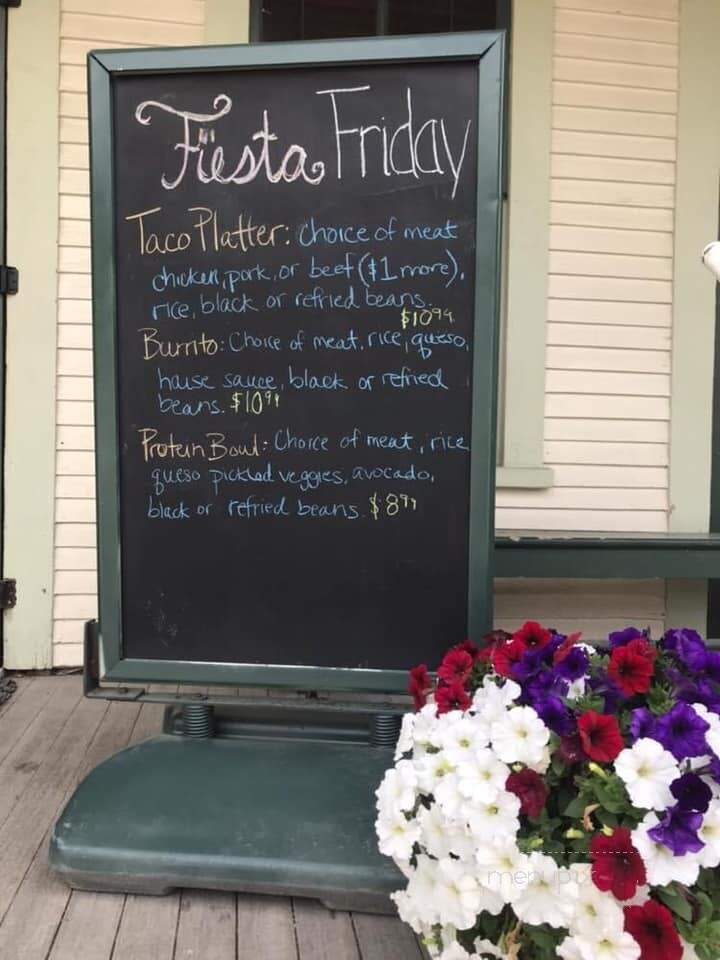 Fiesta Friday
Taco Platter: Choice of meat
chicken, pork, or beef ($1 more),
rice, black or refried beans.
$10.99
Burrito: Choice of meat, rice, queso,
house sauce, black or refried
beans. $10.99
Protein Bowl: Choice of meat, rice
queso pickled veggies, avocado,
black or refried beans. $8.99
menupix